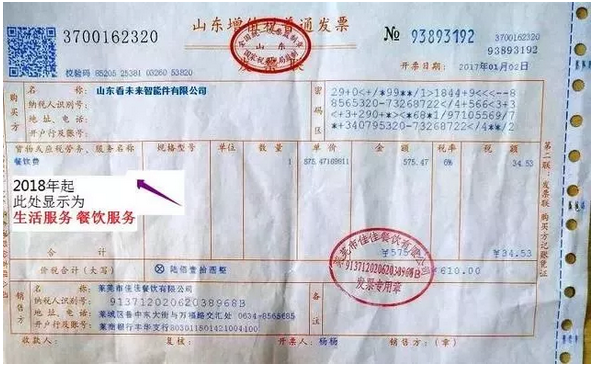 3700162320
山东增值税普通发票
№ 93893192
93893192
校验码 85205 25381 03260 53820
开票日期: 2017年01月02日
购买方
名 称: 山东看未来智能件有限公司
纳税人识别号:
地 址、电 话:
开户行及账号:
密码区
29+0<+/*99**/1>1844+9<<<--8
8565320-73268722</+566<3+3
<+3+290+*><*68*1/97105569/7
*+340795320-73268722</4**/2
货物或应税劳务、服务名称 规格型号 单位 数量 单价 金额 税率 税额
餐饮费 1 575.47169811 575.47 6% 34.53
2018年起
此处显示为
生活服务 餐饮服务
合 计 ¥34.53
价税合计(大写) ⊗ 陆佰壹拾圆整 ¥610.00
销售方
名 称: 莱芜市佳佳餐饮有限公司
纳税人识别号: 91371202062038968B
地 址、电 话: 莱城区鲁中东大街与万福路交汇处 0634-8565685
开户行及账号: 莱商银行丰华支行803011501421004400
备注
莱芜市佳佳餐饮有限公司
91371202062038968B
发票专用章
收款人: 复核: 开票人: 杨杨 销售方:(章)
第二联:发票联 购买方记账凭证